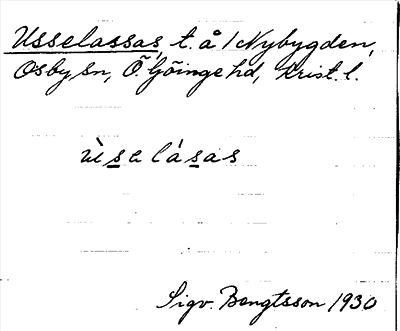 Usselassas, t. å 1 Nybygden,
Osby sn, Ö. Göinge hd, Krist. l.
ùsalásas
Sigv. Bengtsson 1930